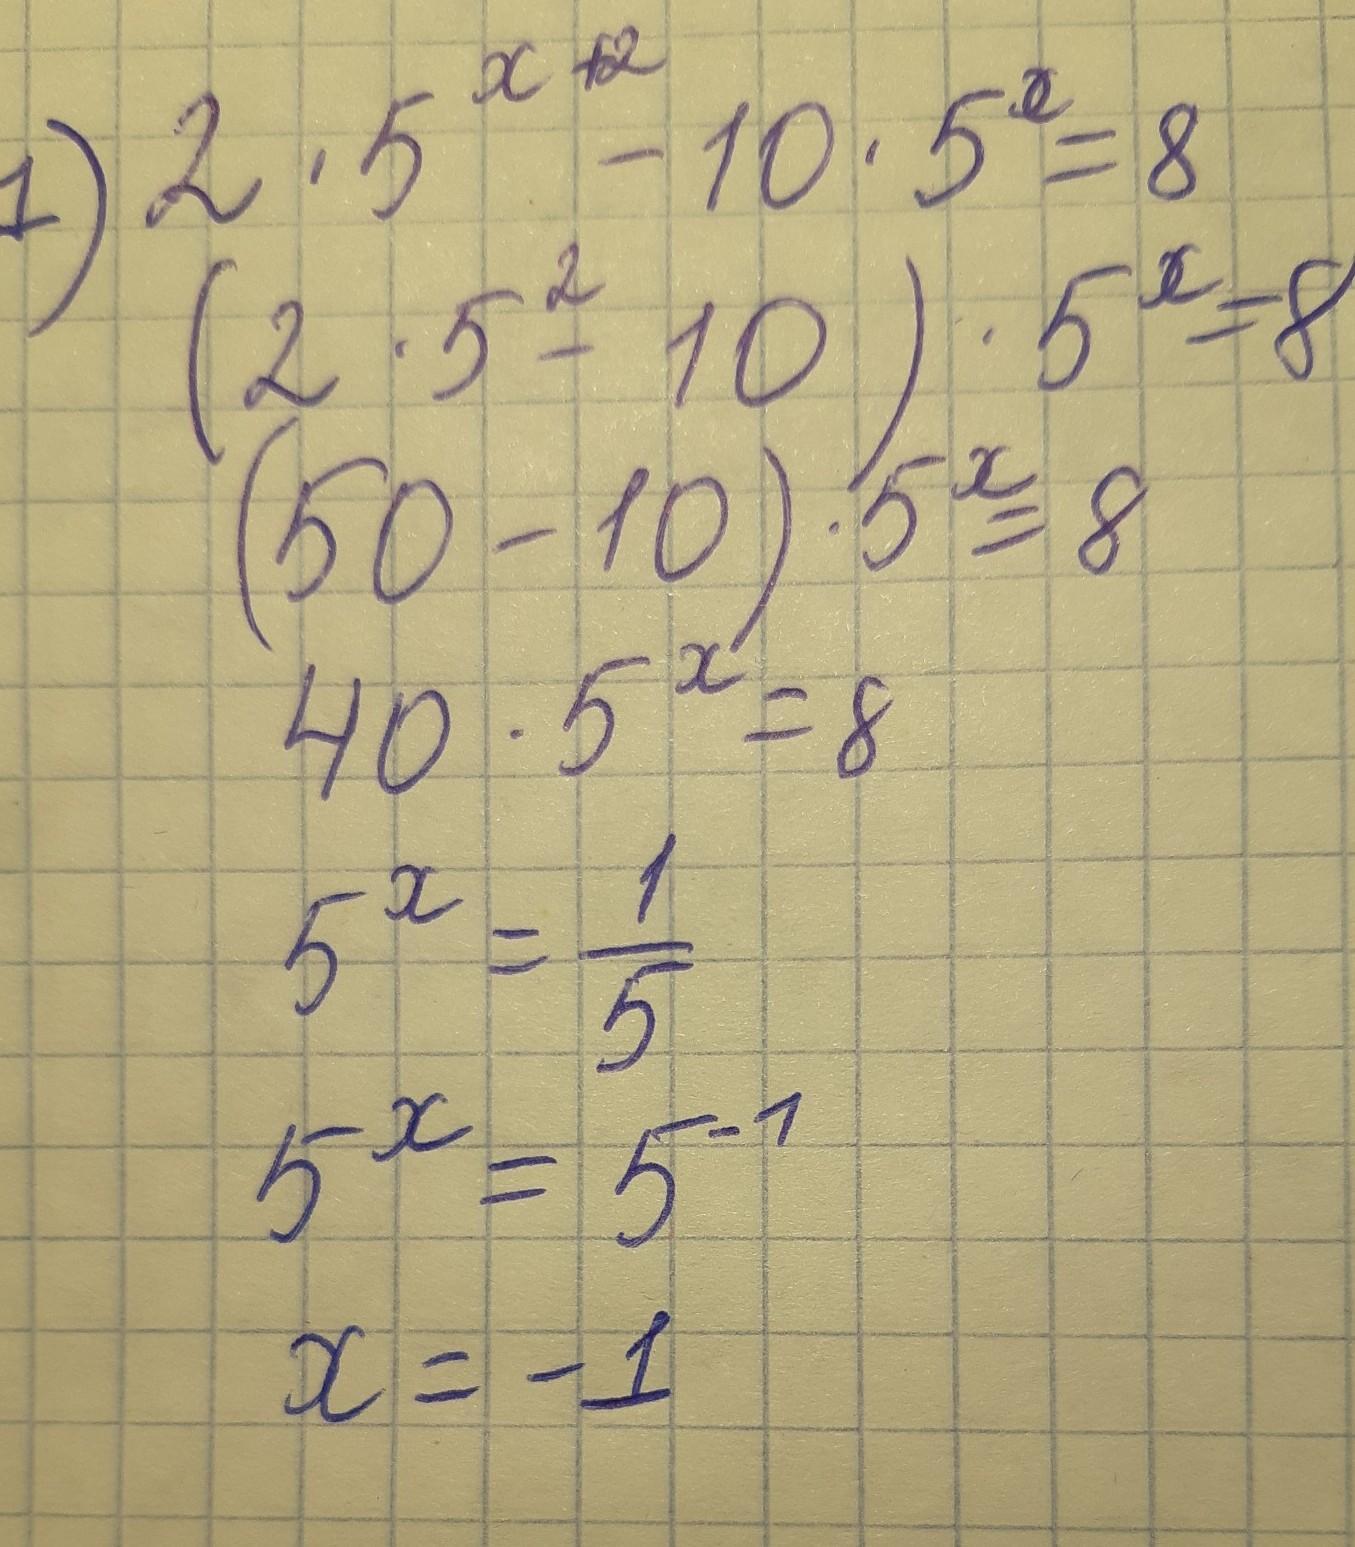 1) 2 · 5^{x+2} - 10 · 5^x = 8
(2 · 5^2 - 10) · 5^x = 8
(50 - 10) · 5^x = 8
40 · 5^x = 8
5^x = \frac{1}{5}
5^x = 5^{-1}
x = -1